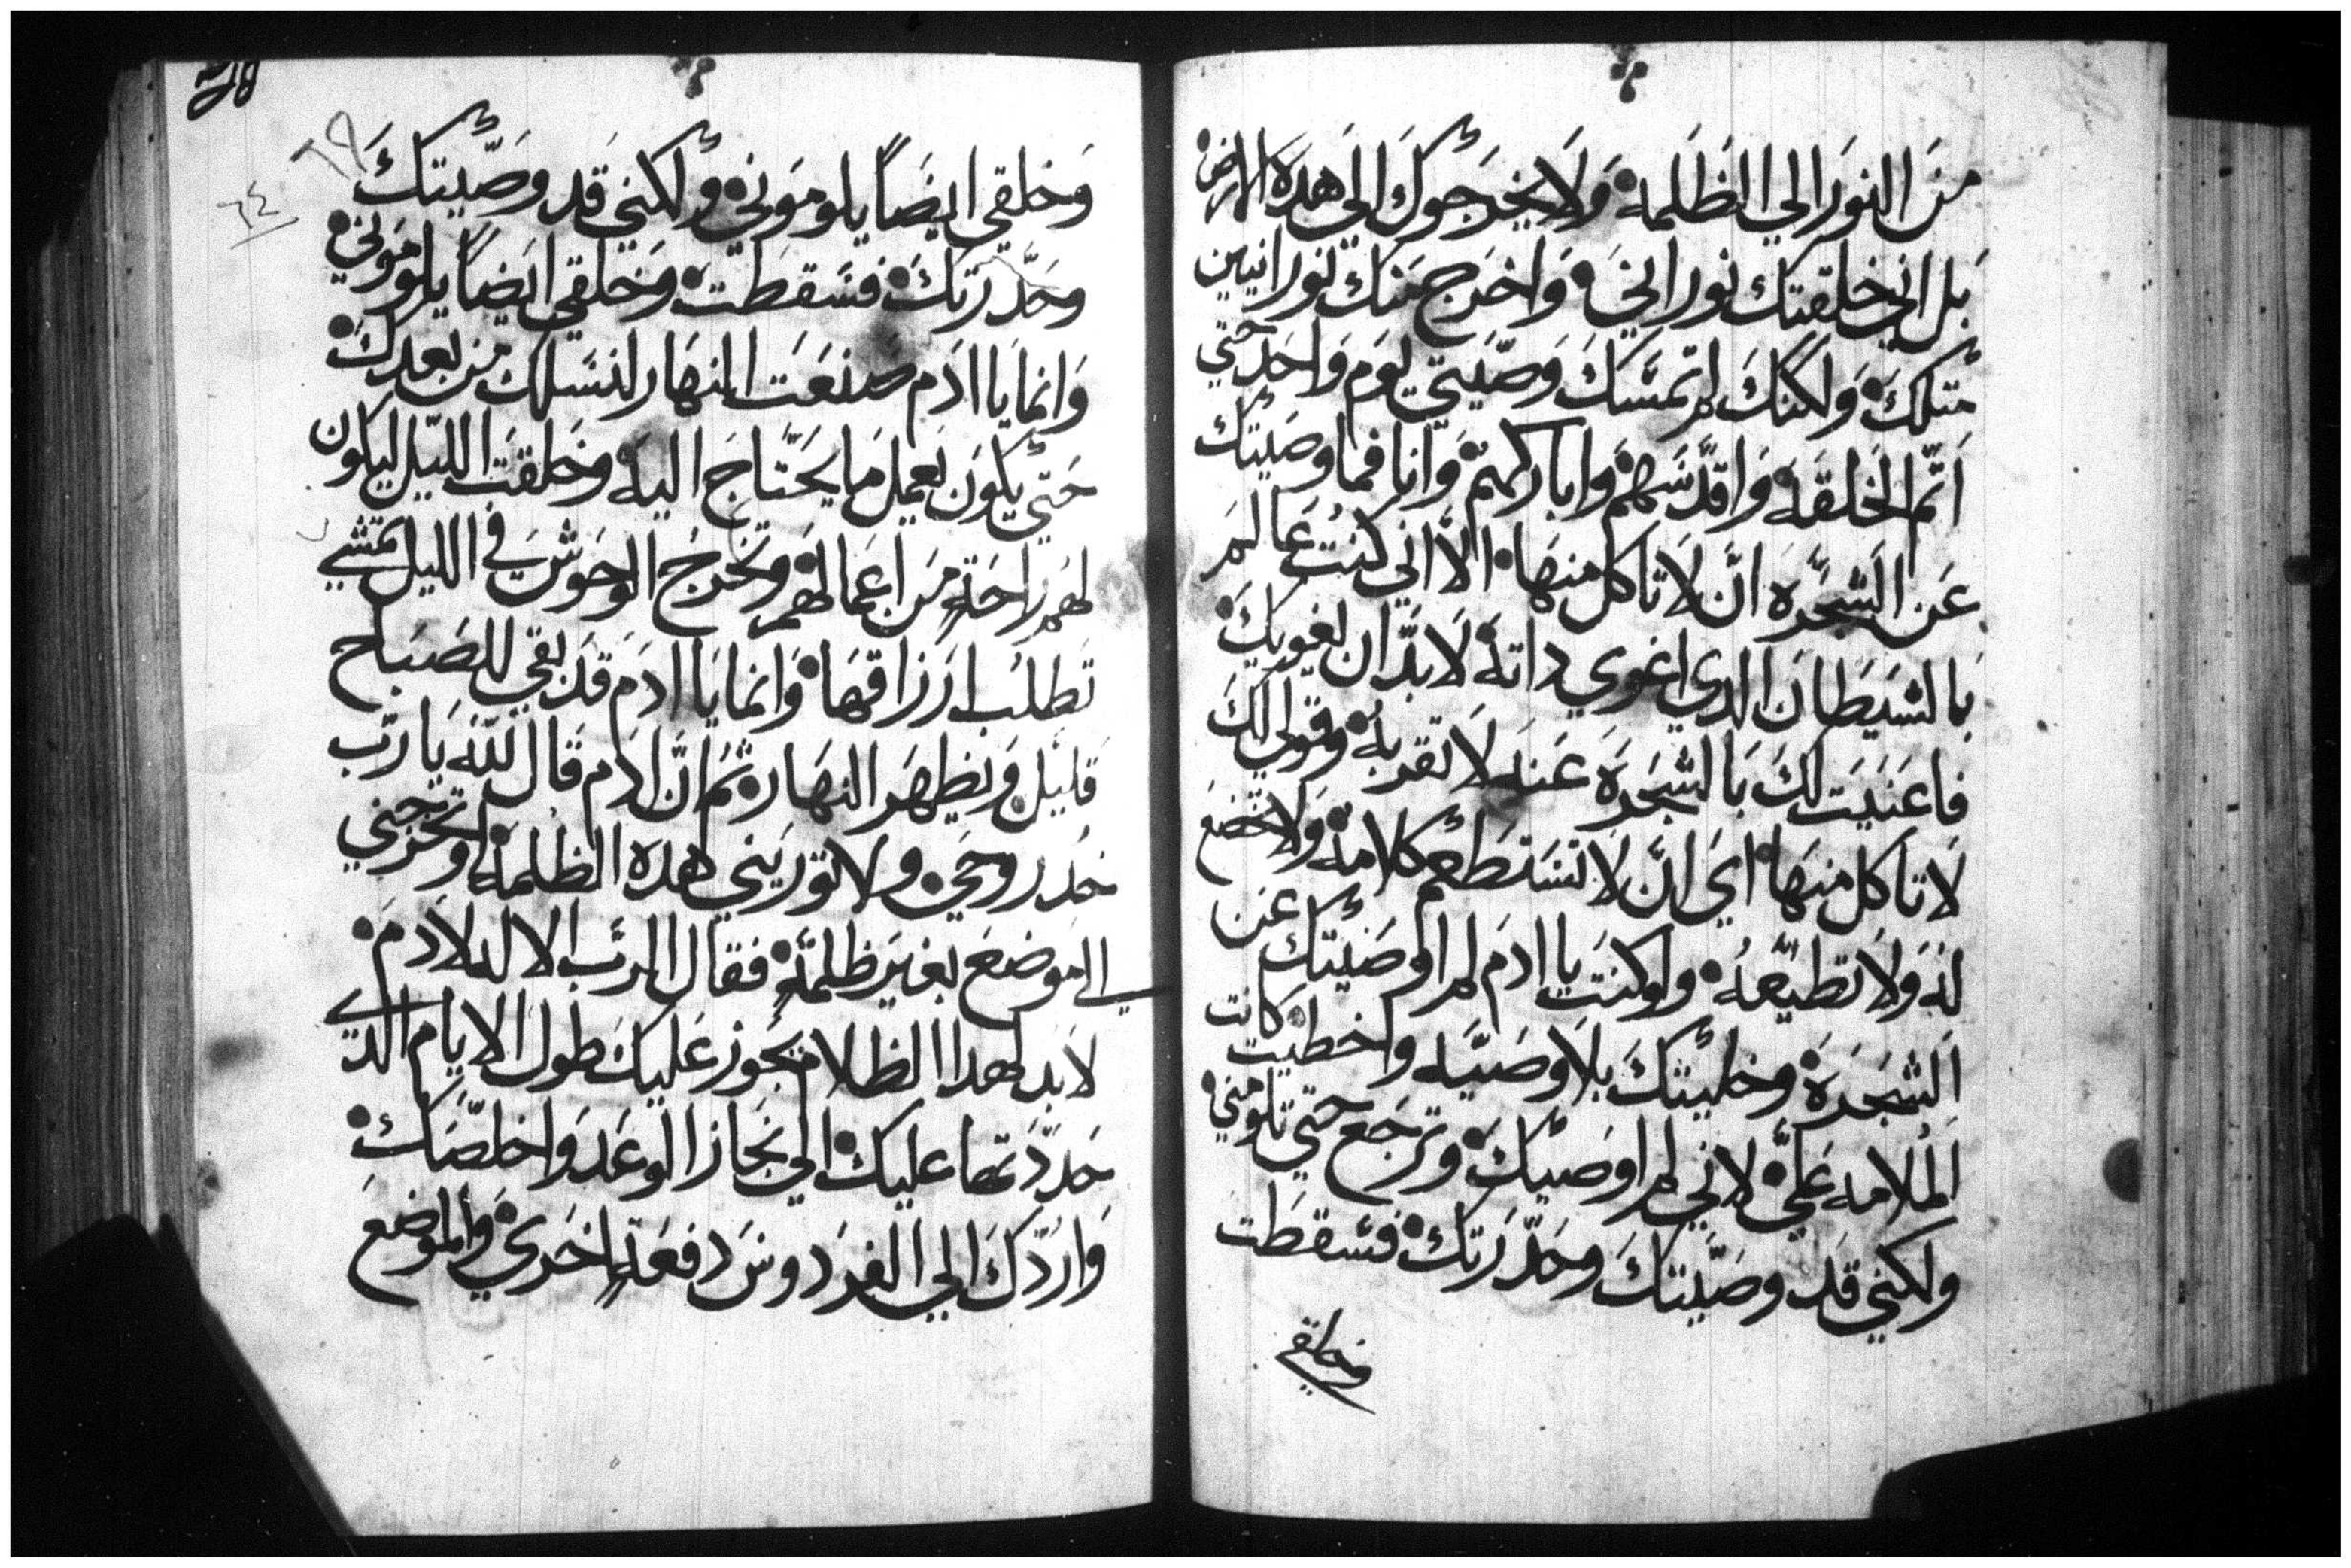 من النور الي الظلمه ولا يخرجوك الي هده الارض
بل اني خلقتك نوراني واخرج منك نورانيين
متلك ولكنك لم تمسك وصيتي يوم واحد حتي
اتم الخلقه واقدسهم واباركهم وانا فما وصيتك
عن الشجره ان لا تاكل منها الا اني كنت عالم
بالشيطان الدي اغوي داته لا بد ان يغويك
فاعنيت لك بالشجره عنه لا تقر به وقولي لك
لا تاكل منها اي ان لا تستطعم كلامه ولا تخضع
له ولا تطيعه ولو كنت يا ادم لم اوصيتك عن
الشجره وخليتك بلا وصيه واخطيت كانت
الملامه علي لاني لم اوصيك وترجع حتي تلومني
ولكني قد وصيتك وحدرتك فسقطت
وخلقي
وخلقي ايضاً يلوموني ولكني قد وصيتك
وحدرتك فسقطت وخلقي ايضاً يلوموني
وانما يا ادم صنعت النهار لنسلك من بعدك
حتي يكون يعمل ما يحتاج اليه وخلقت الليل ليكون
لهم راحة من اعمالهم وتخرج الوحوش في الليل تمشي
تطلب ارزاقها وانما يا ادم قد بقي للصباح
قليل ويظهر النهار ثم ان ادم قال لله يا رب
خد روحي ولا توريني هده الظلمه او تخرجني
الي موضع بغير ظلمة فقال الرب الاله لادم
لا بد لهدا الظلام يجوز عليك طول الايام الدي
حددتها عليك الي نجاز الوعد واخلصك
واردك الي الفردوس دفعة اخري والموضع
٦٤